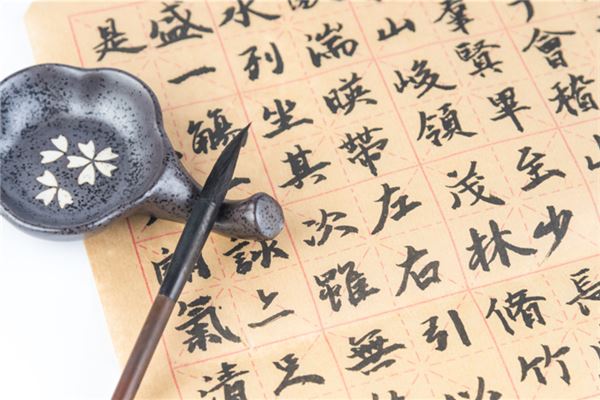 會稽山
羣賢畢至少長
山峻領茂林脩竹
湍暎帶左右引
水列坐其次雖無
盛一觴一詠亦足
是
氣清